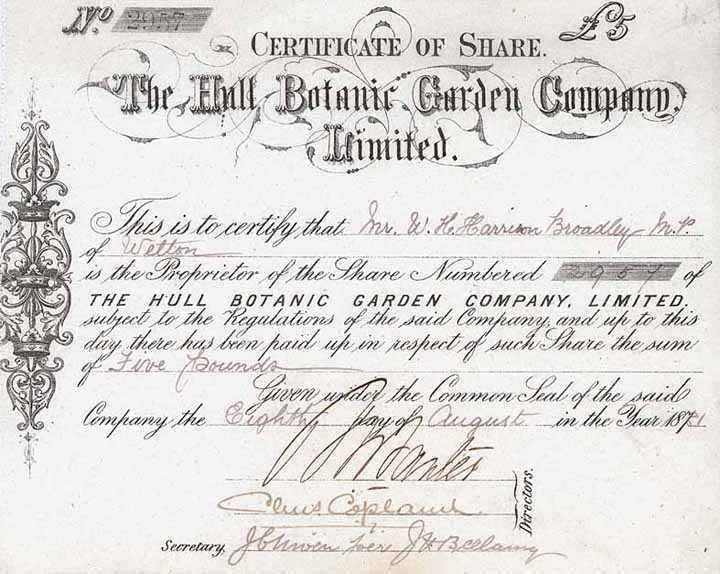 No. 2957
£5
CERTIFICATE OF SHARE.
The Hull Botanic Garden Company,
Limited.
This is to certify that Mr. W. H. Harrison Broadley M.P.
of Welton
is the Proprietor of the Share Numbered 2957 of
THE HULL BOTANIC GARDEN COMPANY, LIMITED.
subject to the Regulations of the said Company, and up to this
day there has been paid up in respect of such Share the sum
of Five Pounds
Given under the Common Seal of the said
Company the Eighth day of August in the Year 1881
Copland
Directors.
Secretary, per J H Bellamy